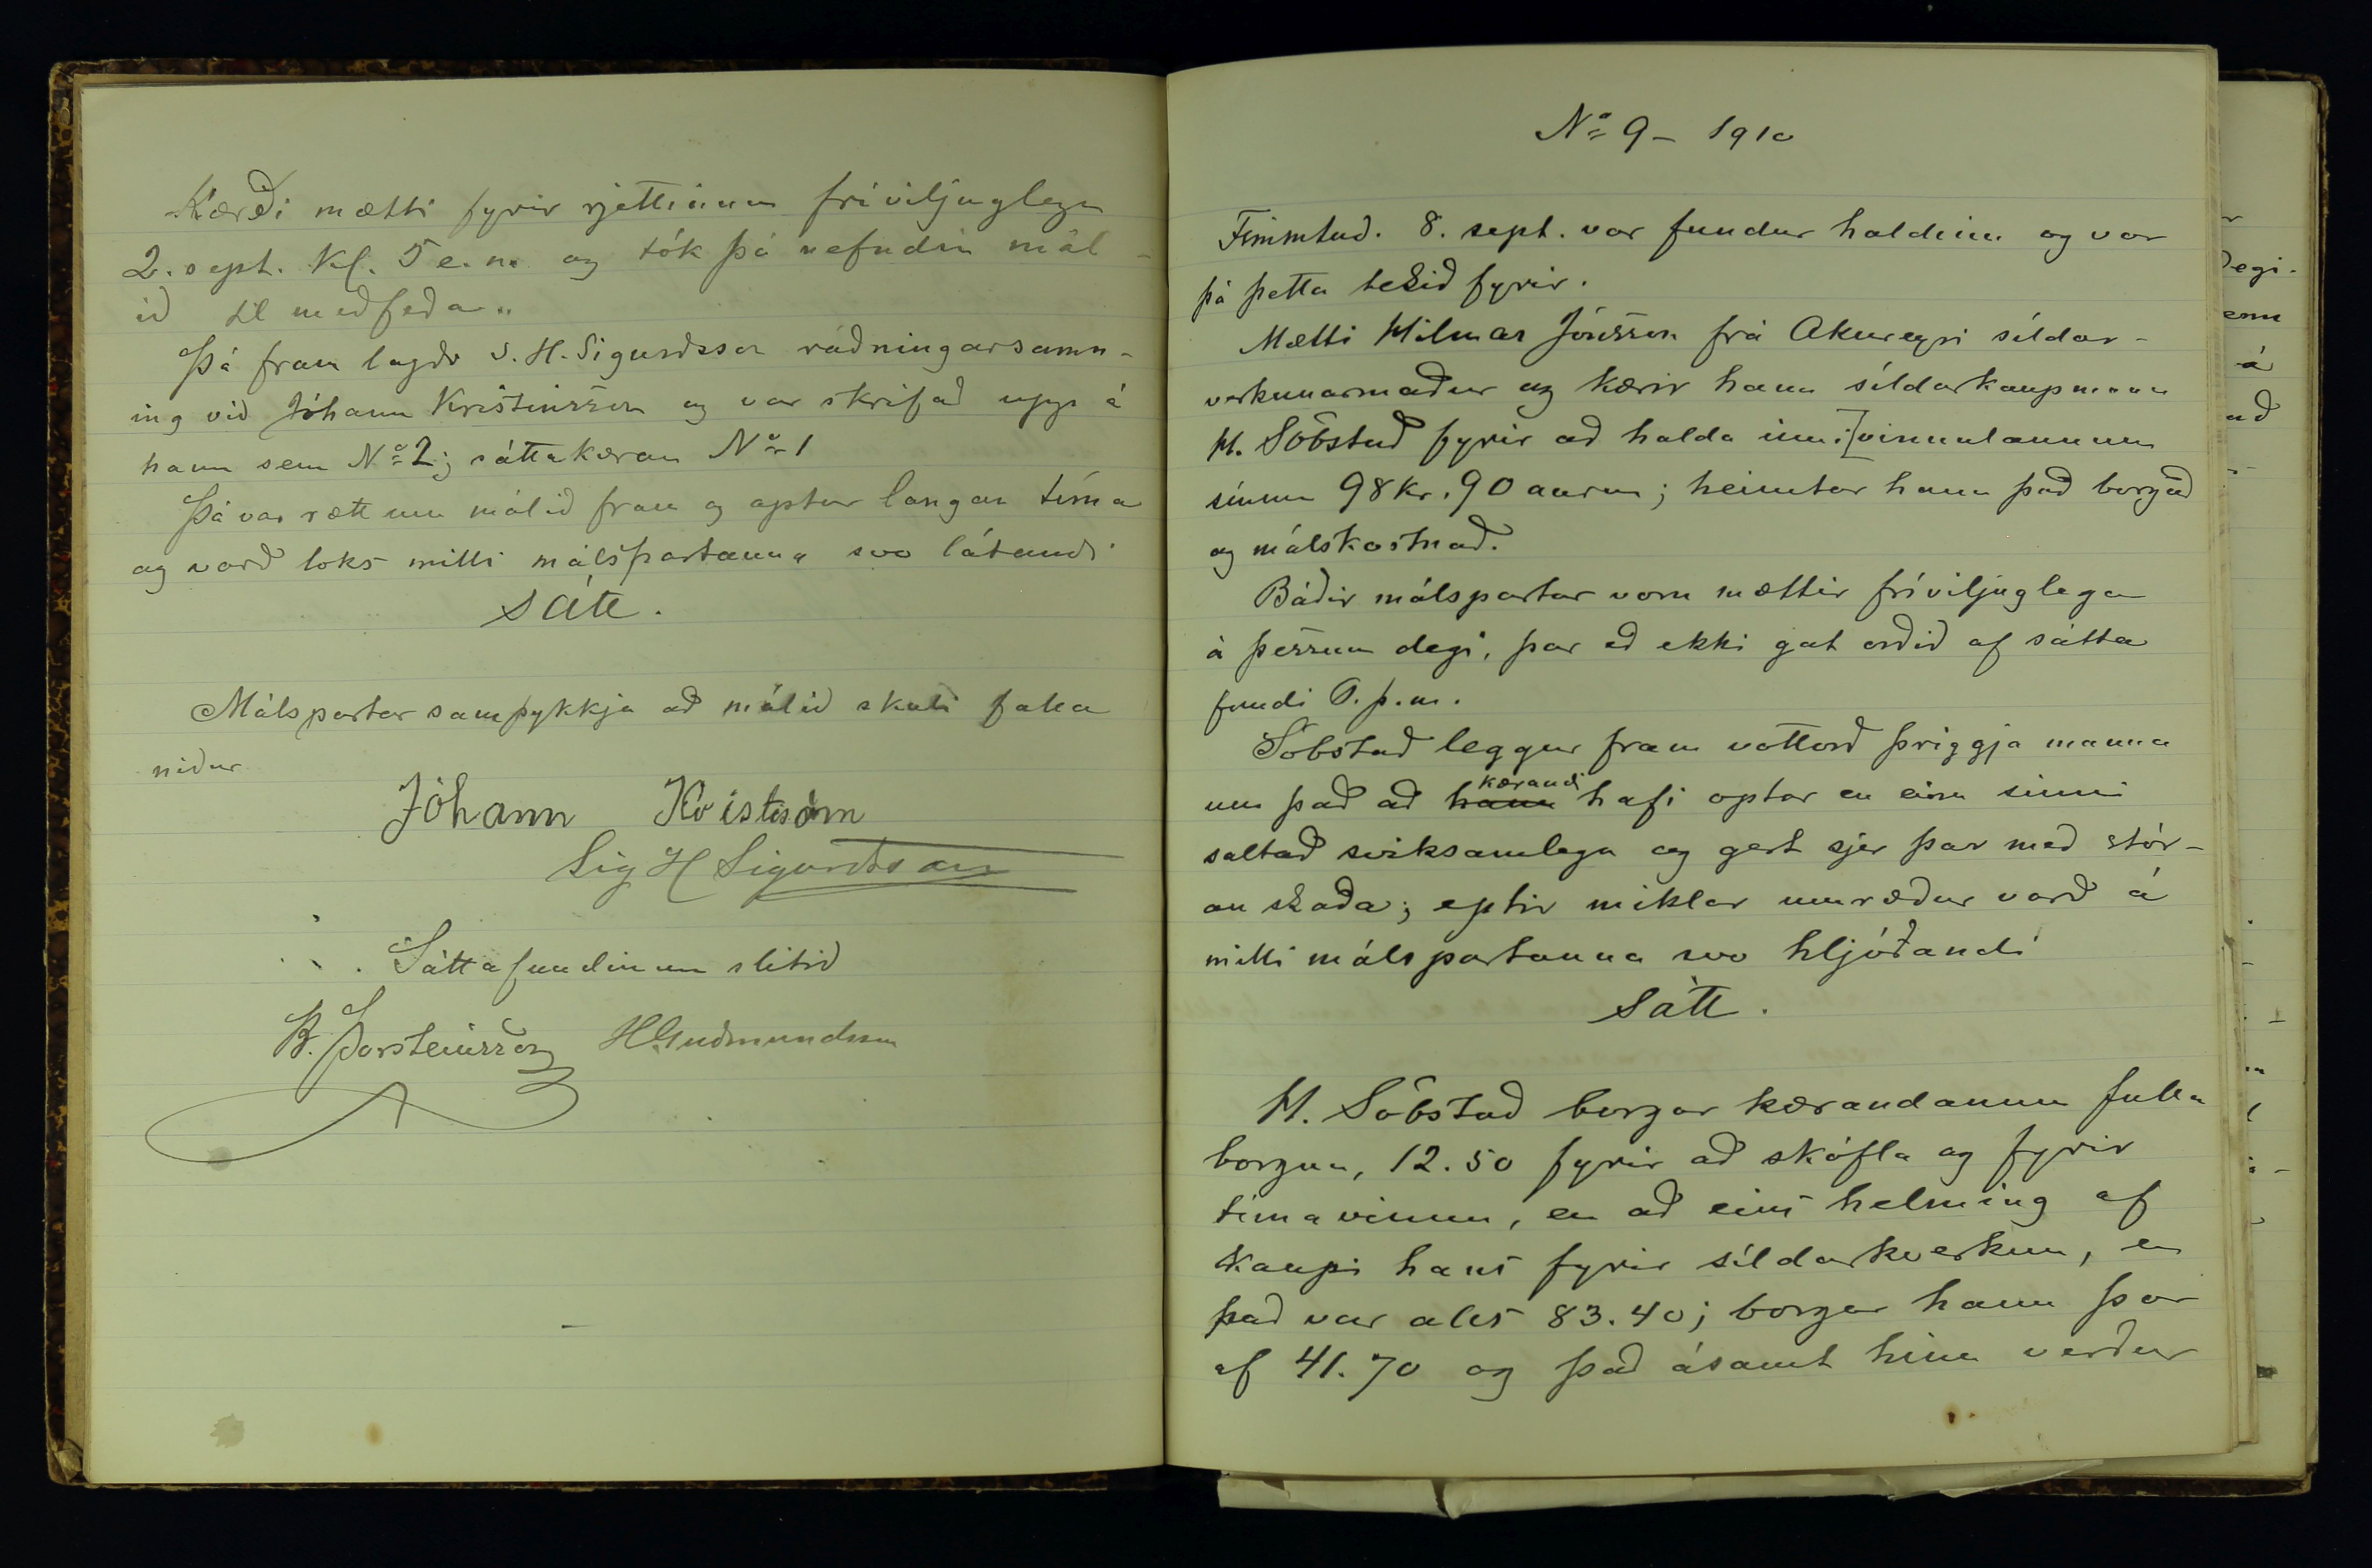 Kærði mætti fyrir rjettinum fríviljuglega
2. sept. Kl. 5 e. m. og tók þá nefndin mál-
ið til meðferða..
Þá fram lagði S. H. Sigurdsson ráðningarsamn-
ing við Jóhann Kristinsson og var skrifað upp á
hann sem No 2; sáttakæran No 1
Þá var rætt um málið fram og aptur langan tíma
og varð loks milli málspartanna svo látandi
Sátt.
Málspartar samþykkja að málið skuli falla
niður
Jóhann Kristinsson
Sig H Sigurdsson
Sáttafundinum slitið
B. Þorsteinsson HGuðmundsson
No 9 – 1910
Fimmtud. 8. sept. var fundur haldinn og var
þá þetta tekið fyrir.
Mætti Hilmar Jónsson frá Akureyri síldar-
verkunarmaður og kærir hann síldarkaupmann
H. Söbstad fyrir að halda inni vinnulaunum
sínum 98 kr. 90 aurum; heimtar hann það borgað
og málskostnað.
Báðir málspartar voru mættir fríviljuglega
á þessum degi, þar eð ekki gat orðið af sátta
fundi 6. þ. m.
Söbstad leggur fram vottorð þriggja manna
um það að hann kærandi hafi optar en einu sinni
saltað sviksamlega og gert sjer þar með stór-
an skaða; eptir miklar umræður varð á
milli málspartanna svo hljóðandi
Sátt.
H. Söbstad borgar kærandanum fulla
borgun, 12.50 fyrir að skófla og fyrir
tímavinnu, en að eins helming af
kaupi hans fyrir síldarkverkun, en
það var alls 83.40; borgar hann þar
af 41.70 og það ásamt hinu verður